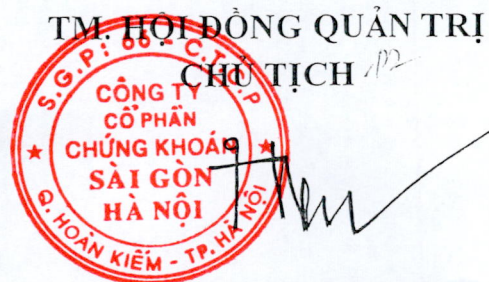 TM. HỘI ĐỒNG QUẢN TRỊ
CHỦ TỊCH
S.G.P: 66 - C.T.C.P
CÔNG TY
CỔ PHẦN
CHỨNG KHOÁN
SÀI GÒN
HÀ NỘI
Q. HOÀN KIẾM - TP. HÀ NỘI